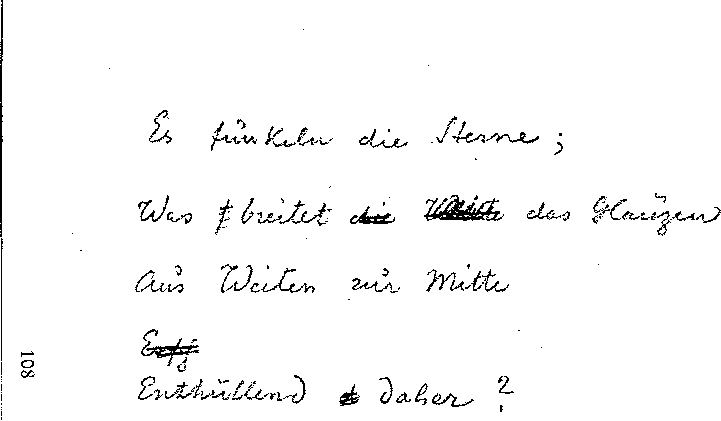 Es funkeln die Sterne;
Was breitet die Weite das Glänzen
Aus Weiten zur Mitte
Enthüllend daher?
108